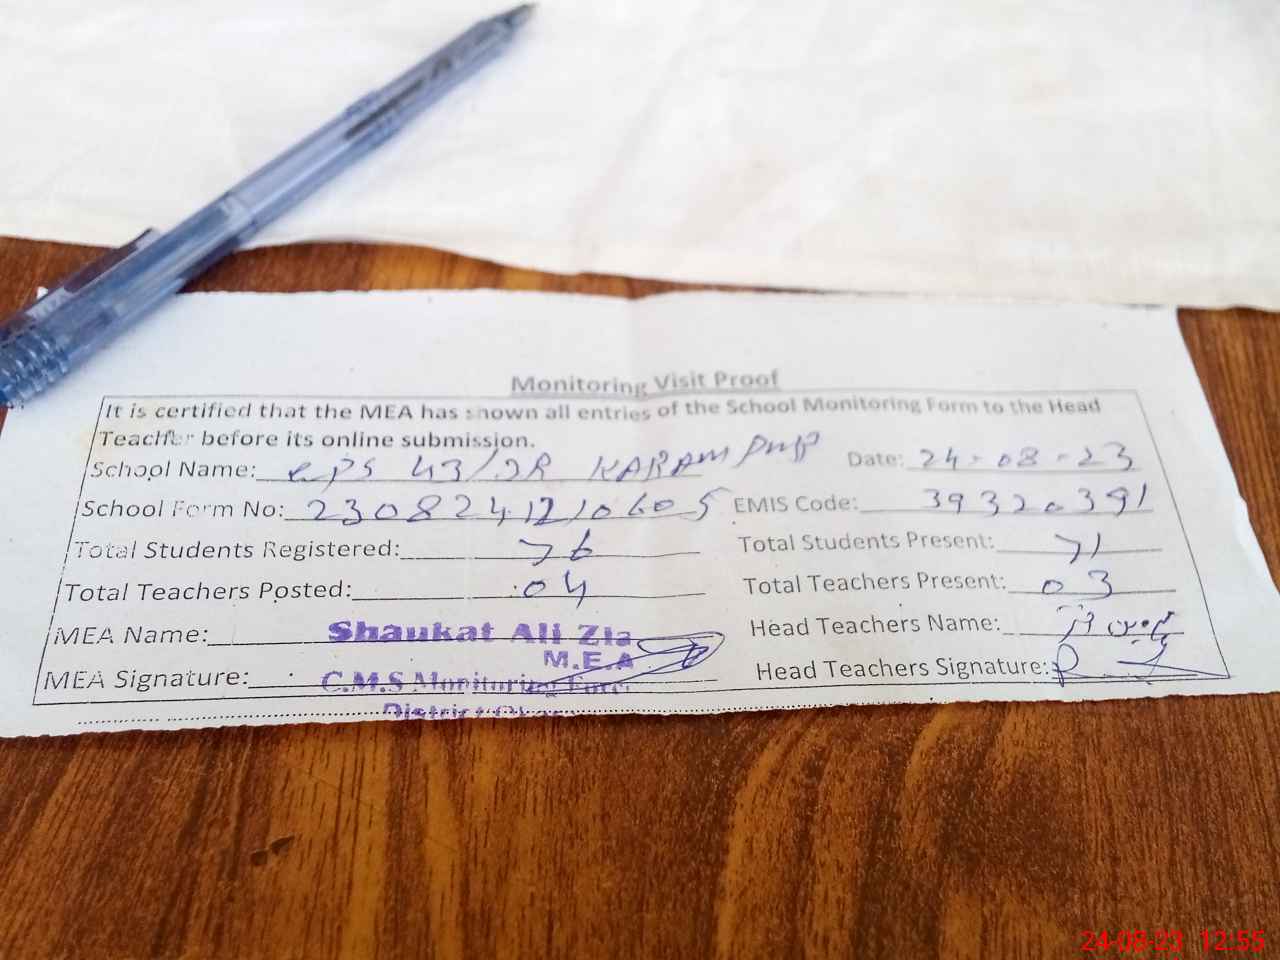 Monitoring Visit Proof
It is certified that the MEA has shown all entries of the School Monitoring Form to the Head
Teacher before its online submission.
School Name: GPS 43/2R KARAM Date: 24-08-23
School Form No: 23082412110605 EMIS Code: 39320391
Total Students Registered: 76 Total Students Present: 71
Total Teachers Posted: 04 Total Teachers Present: 03
MEA Name: Shaukat Ali Zia Head Teachers Name:
M.E.A
MEA Signature: C.M.S Monitoring Force Head Teachers Signature:
District
24-08-23 12:55